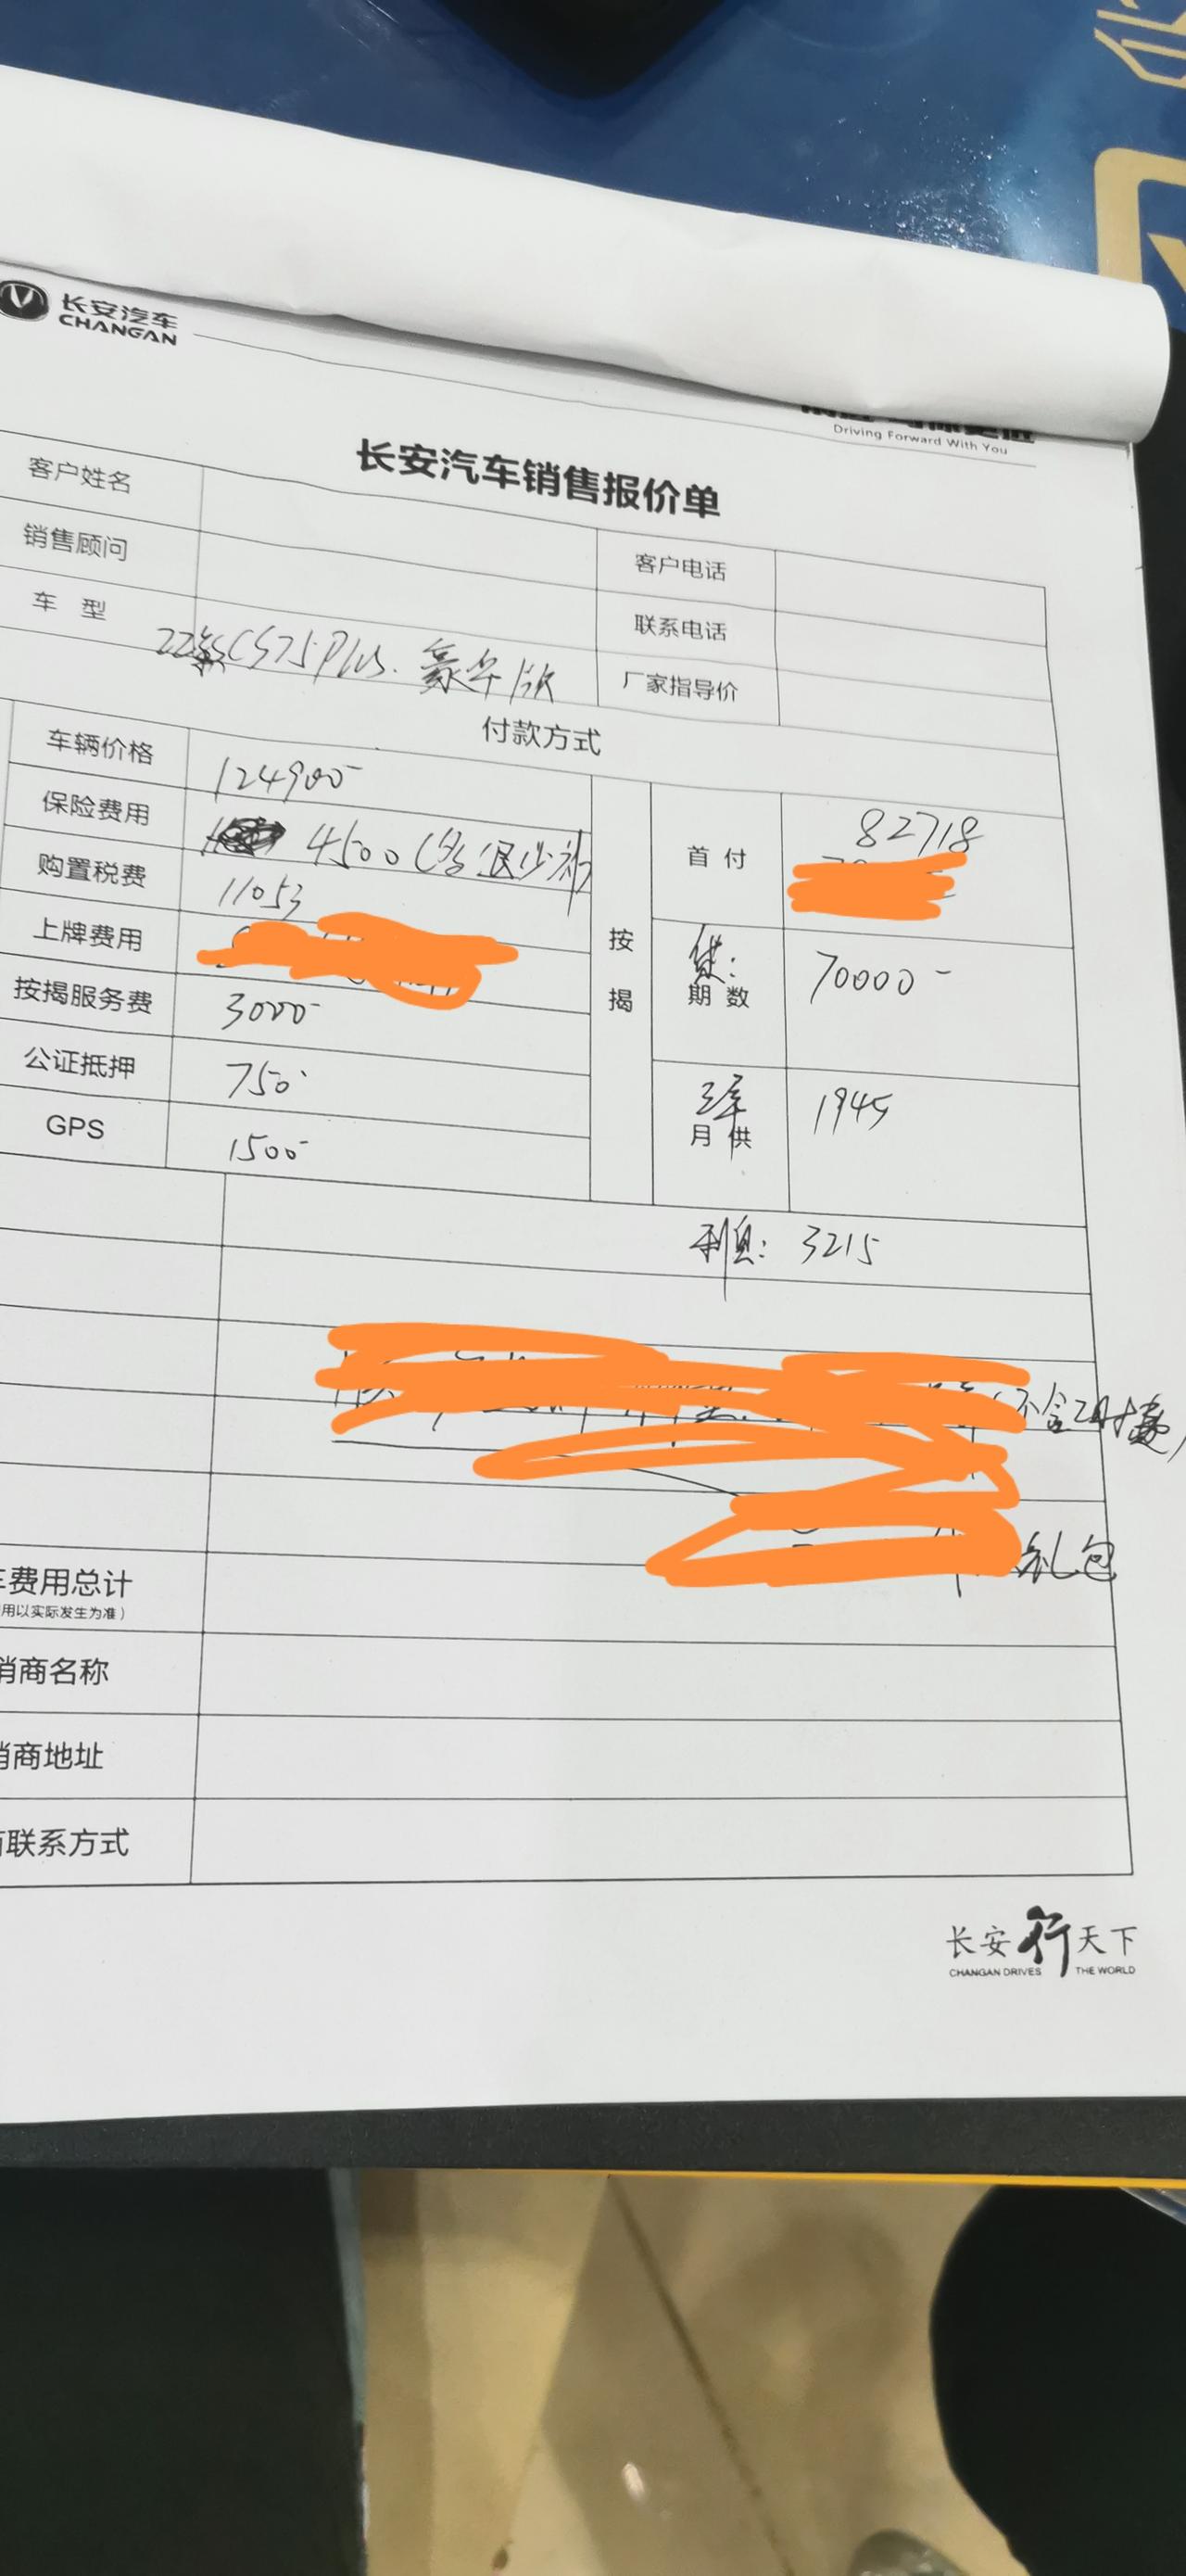 长安汽车
CHANGAN
Driving Forward With You
长安汽车销售报价单
客户姓名
销售顾问 客户电话
车 型 22款CS75Plus. 豪华版 联系电话
厂家指导价
付款方式
车辆价格 124900
保险费用 4500(多退少补)
购置税费 11053
上牌费用
按揭服务费 3000
公证抵押 750
GPS 1500
按揭
首付 82718
贷: 70000
期数
三年 1945
月供
利息: 3215
(不含工时费)
礼包
费用总计
用以实际发生为准)
销商名称
销商地址
联系方式
长安行天下
CHANGAN DRIVES THE WORLD